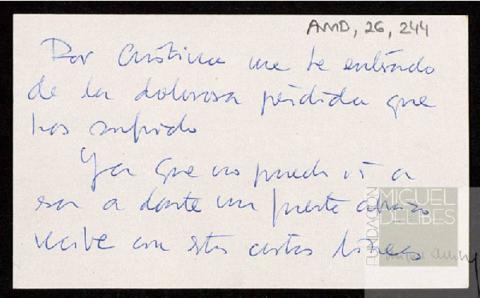 AMD, 26, 244
Por Cristina me he enterado
de la dolorosa pérdida que
has sufrido
Ya que no puedo ir a
a darte un fuerte abrazo
recibe con estas cortas líneas
FUNDACIÓN
MIGUEL
DELIBES